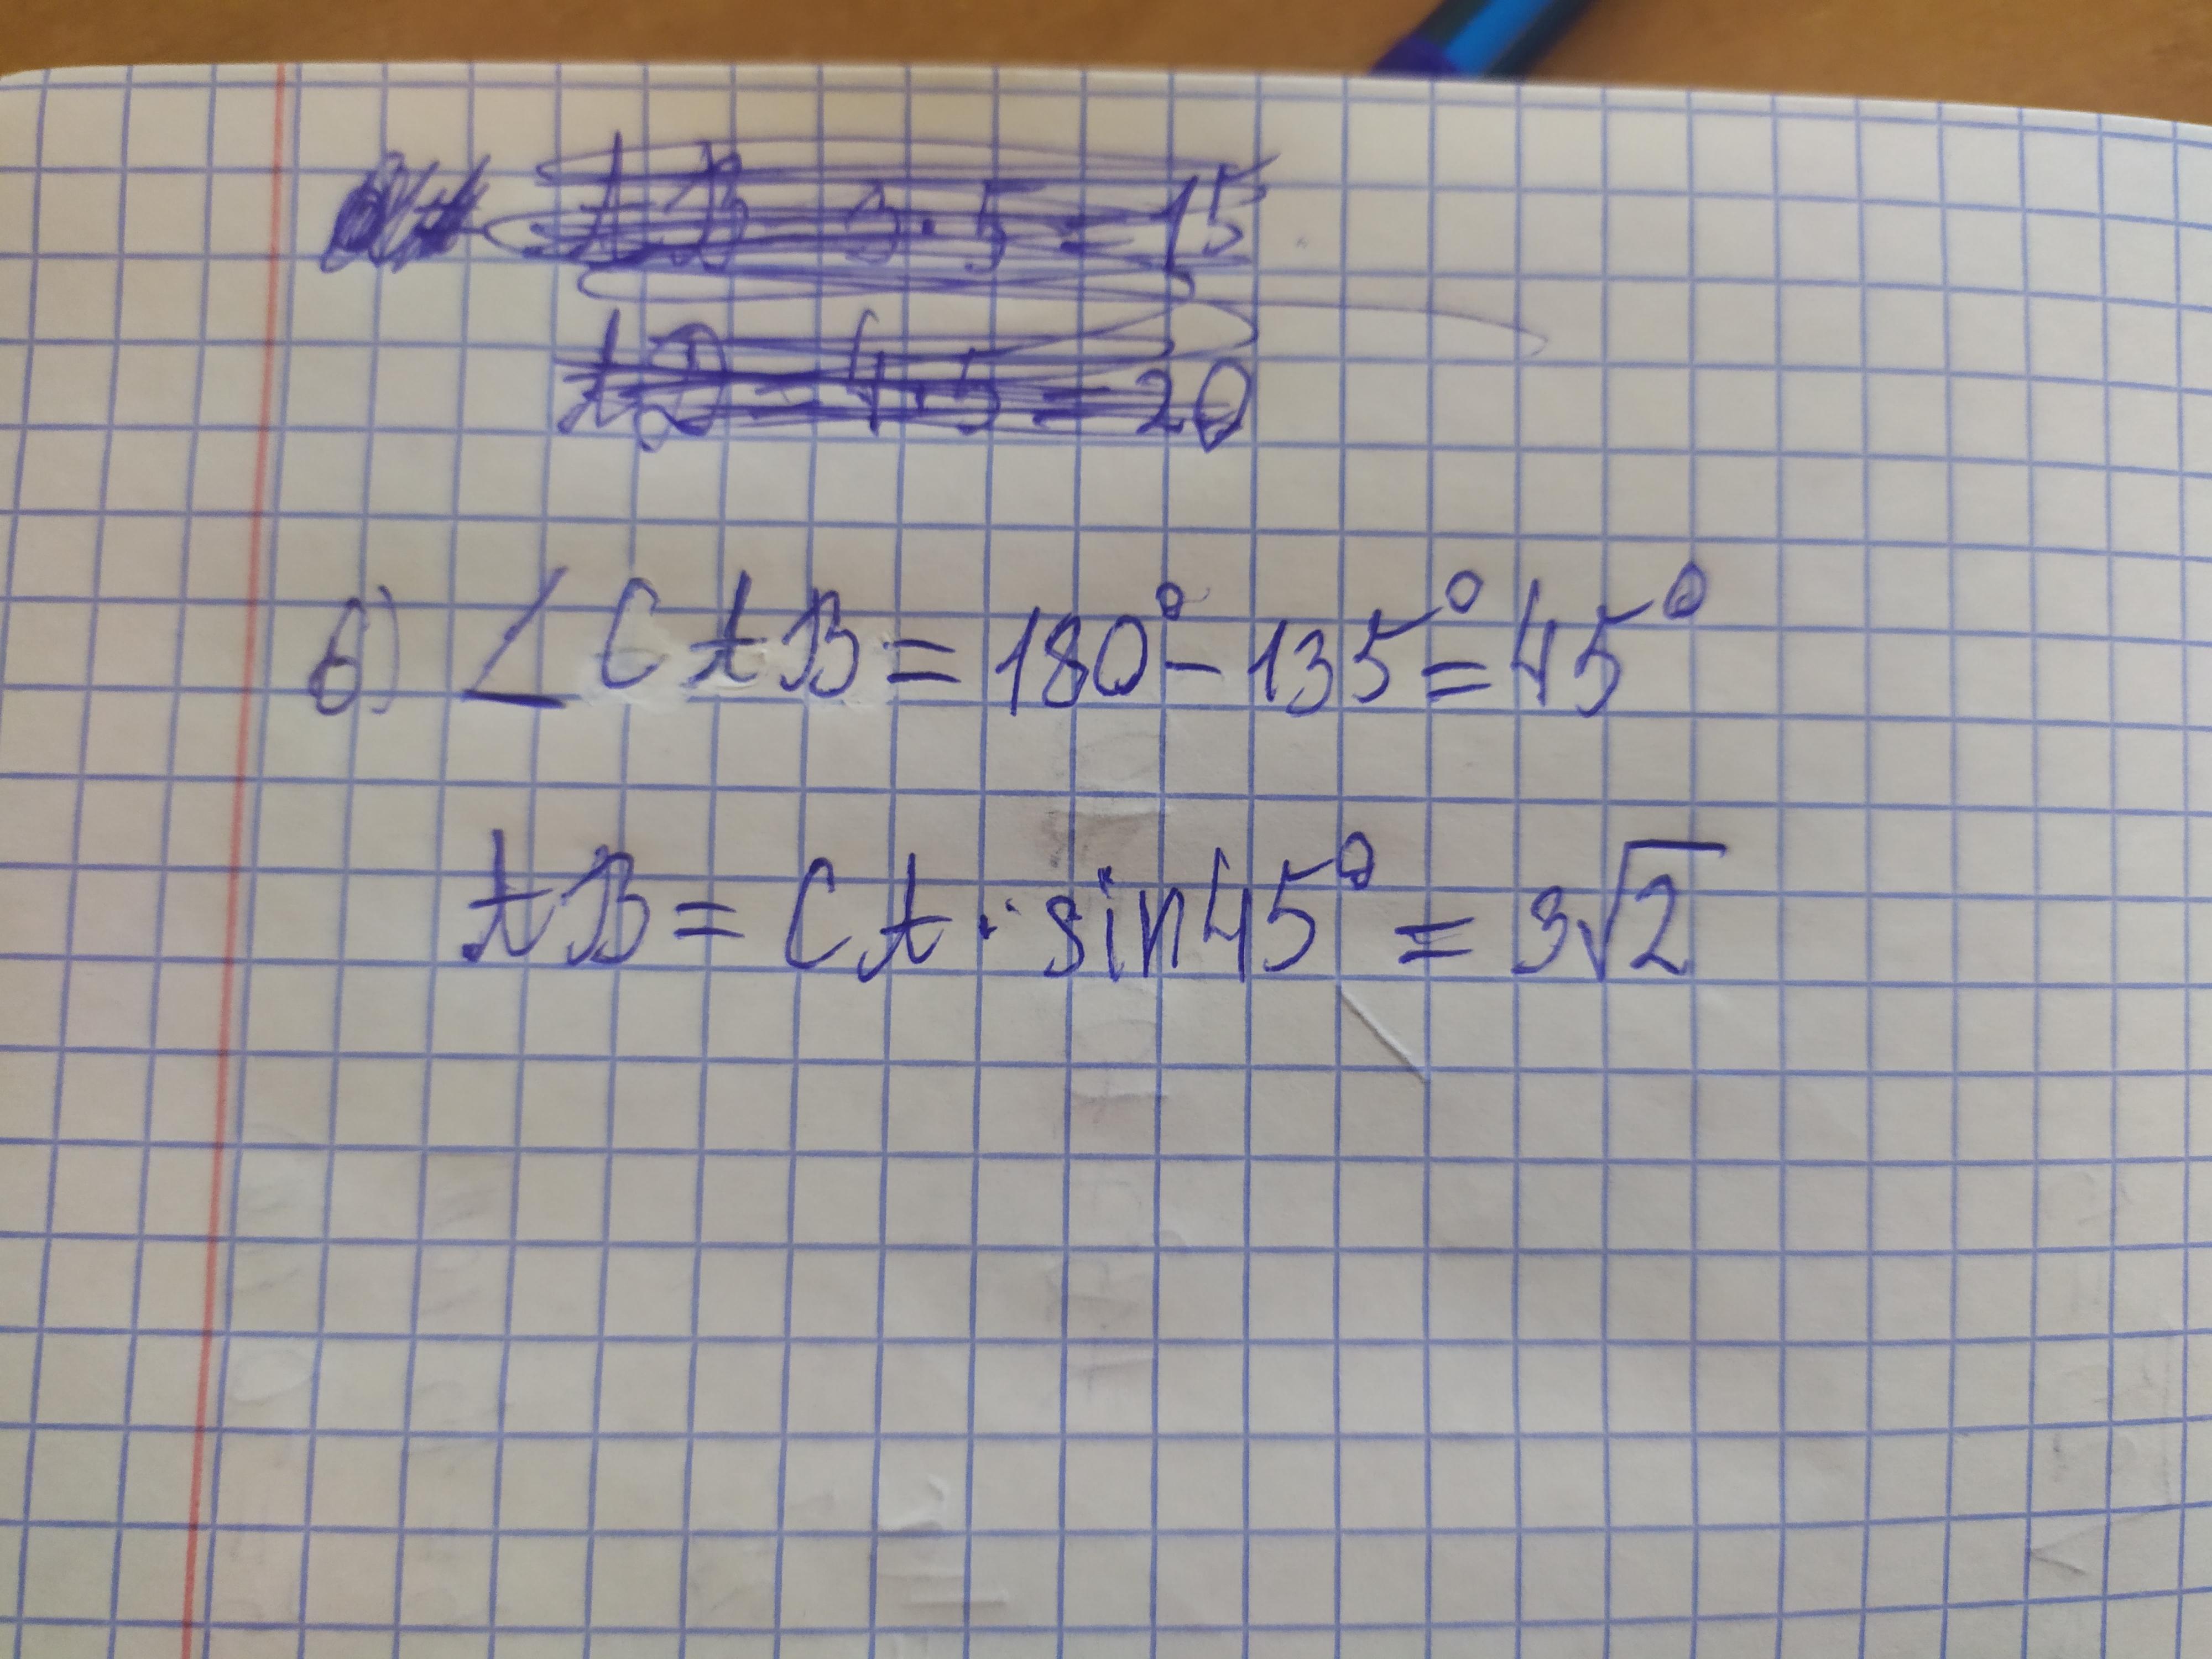 AB = 3·5 = 15
AD = 4·5 = 20
б) ∠CAB = 180° - 135° = 45°
AB = CA · sin45° = 3√2